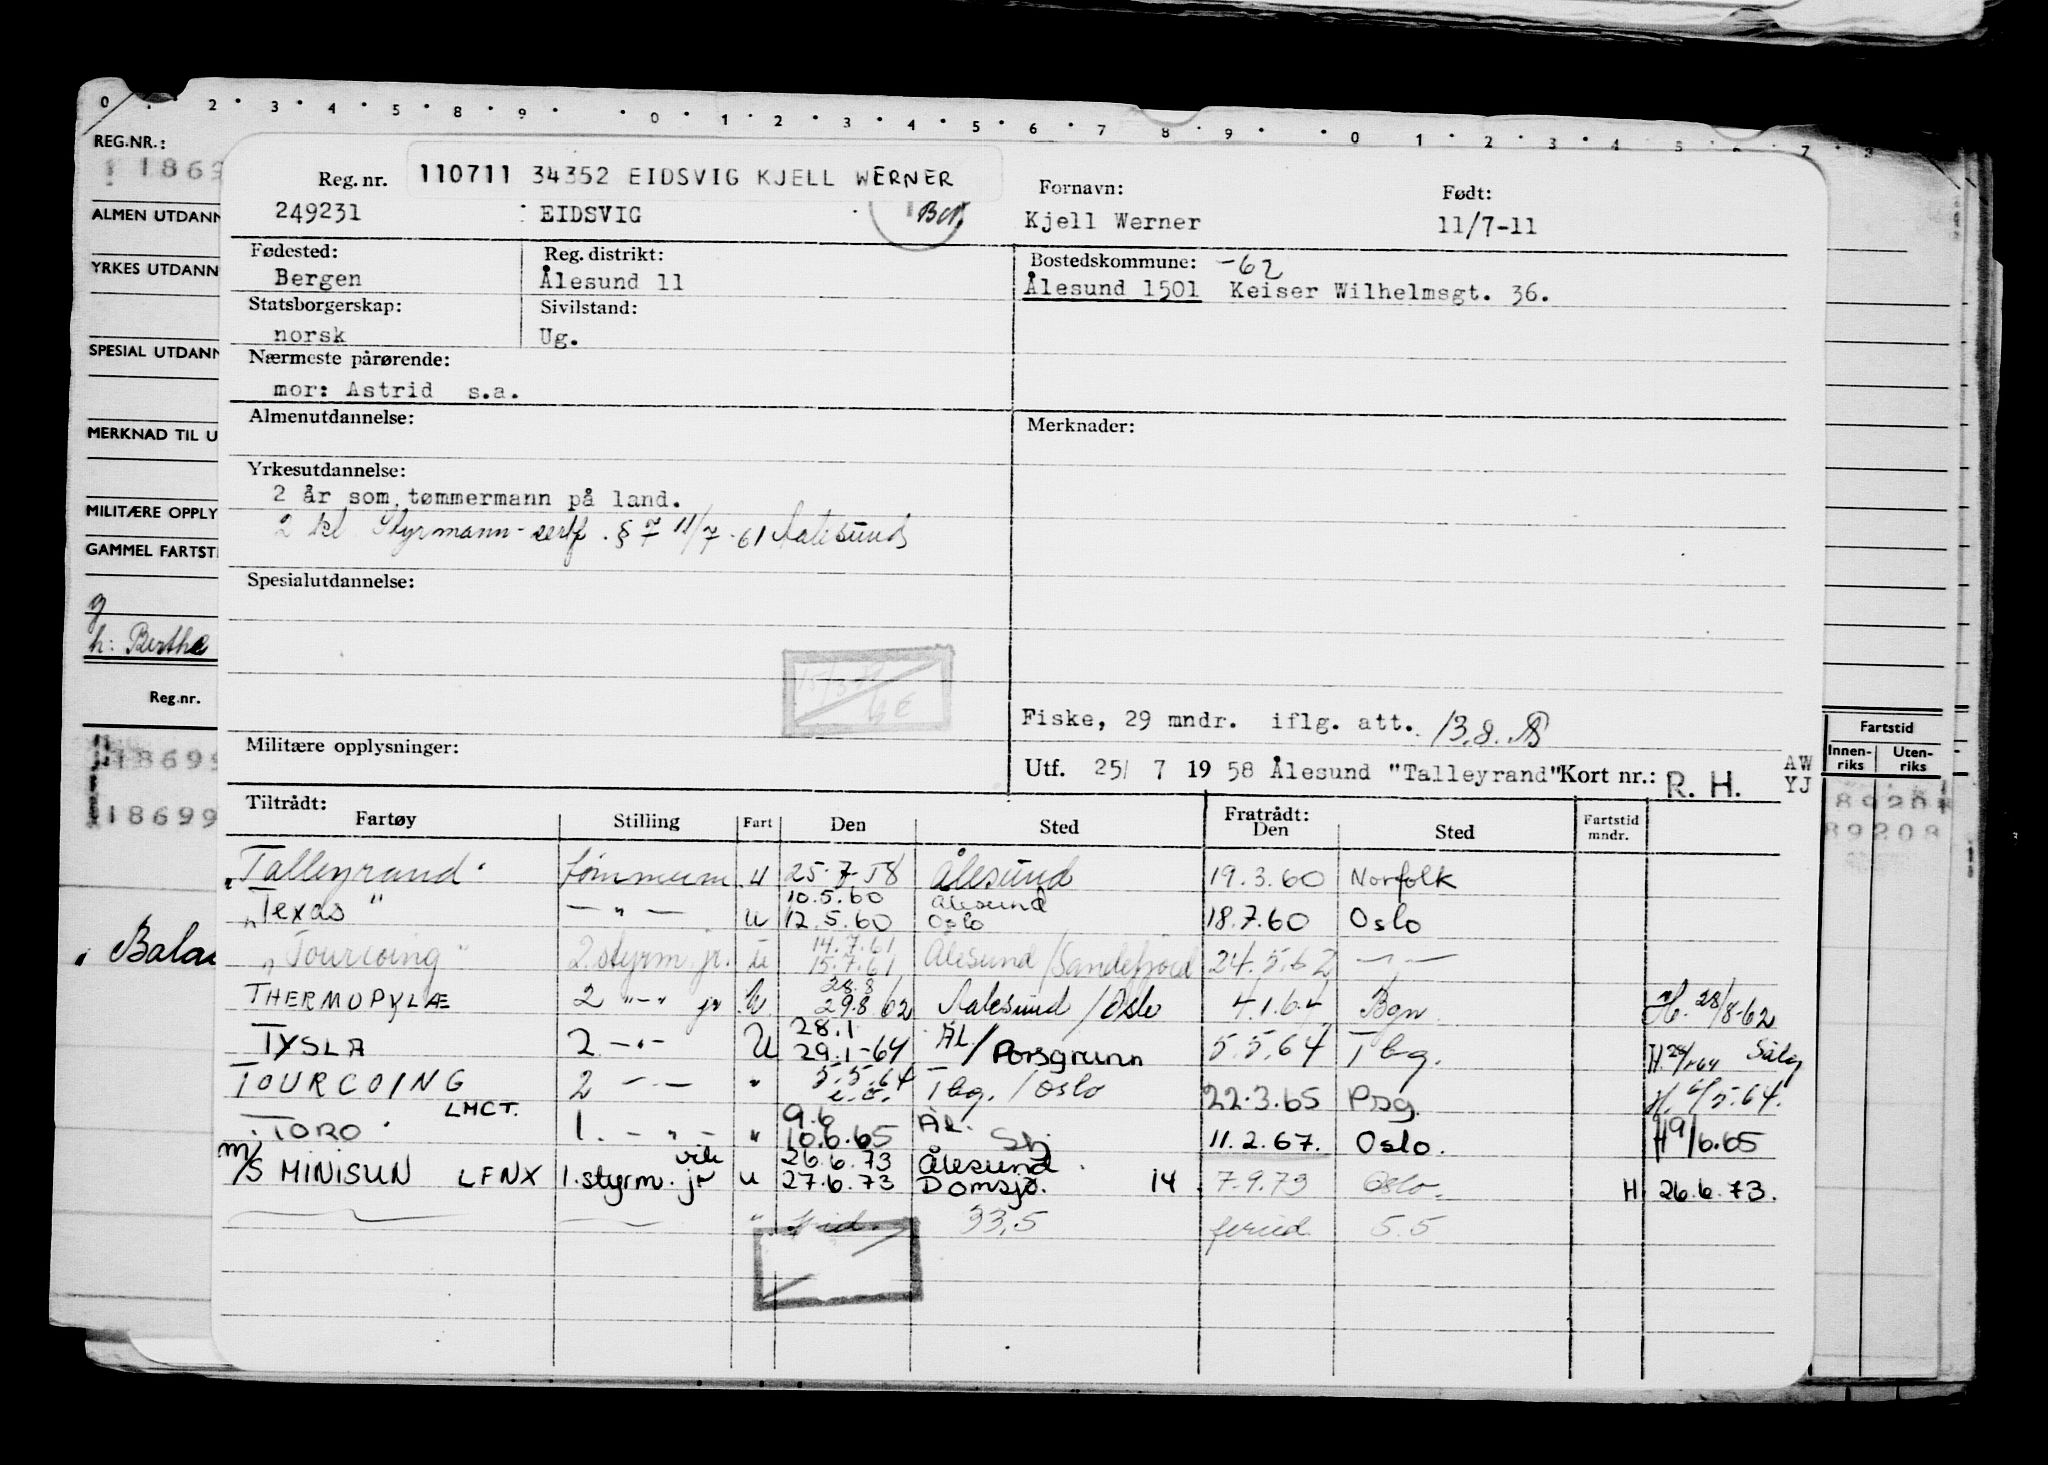 0 2 3 4 5 8 9 0 1 2 3 4 5 6 7 8 9 0 1 2 3 4 5 6 7
REG.NR.:
1869
ALMEN UTDANN
YRKES UTDANN
SPESIAL UTDANN
MERKNAD TIL U
MILITÆRE OPPLY
GAMMEL FARTST
g
h: Berthe
Reg.nr.
18699
18699
"Bala
Reg. nr. 110711 34352 EIDSVIG KJELL WERNER Fornavn: Født:
249231 EIDSVIG Kjell Werner 11/7-11
Fødested: Reg. distrikt: Bostedskommune: -62
Bergen Ålesund 11 Ålesund 1501 Keiser Wilhelmsgt. 36.
Statsborgerskap: Sivilstand:
norsk Ug.
Nærmeste pårørende:
mor: Astrid s.a.
Almenutdannelse: Merknader:
Yrkesutdannelse:
2 år som tømmermann på land.
2 kl. Styrmann-sertf. § 7 11/7-61 Aalesund
Spesialutdannelse:
Fiske, 29 mndr. iflg. att. 13.8.
Militære opplysninger:
Utf. 25/ 7 19 58 Ålesund "Talleyrand" Kort nr.: R. H. AW YJ
Tiltrådt: Fratrådt:
Fartøy Stilling Fart Den Sted Den Sted Fartstid mndr.
"Talleyrand" tømmerm. u 25.7.58 Ålesund 19.3.60 Norfolk
10.5.60 Ålesund
"Texas" — " — u 12.5.60 Oslo 18.7.60 Oslo
14.7.61
"Tourcoing" 2. styrm. jr. u 15.7.61 Ålesund/Sandefjord 24.5.62 — " —
28.8
THERMOPYLÆ 2 "-" jr u 29.8.62 Aalesund/Oslo 4.1.64 Bgn. H. 28/8-62
28.1
TYSLA 2 -"- U 29.1-64 Ål/Porsgrunn 5.5.64 Tbg.
5.5.64
TOURCOING 2 -"- " Tbg./Oslo 22.3.65 Prsg. H. 6/5.64.
LMCT. 9.6 Ål.
"TORO" 1. -"- " 10.6.65 11.2.67. Oslo. H 9/6.65
26.6.73 Ålesund
M/S MINISUN LFNX 1. styrm. jr u 27.6.73 Domsjø. 14 7.9.73 Oslo. H 26.6.73.
33,5 5.5
Fartstid
Innen-riks Uten-riks
89208
89208